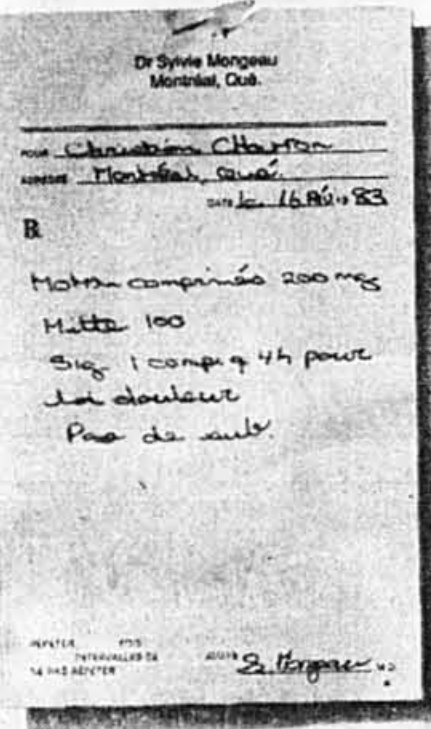 Dr Sylvie Mongeau
Montréal, Qué.
POUR Christian Charron
ADRESSE Montréal, Qué.
DATE le 16 Fév. 83
R
Motrin comprimés 200 mg
Mitte 100
Sig. 1 comp. q 4h pour
la douleur
Pas de sub.
RÉPÉTER FOIS
INTERVALLES DE
NE PAS RÉPÉTER
SIGNÉ S. Mongeau M.D.